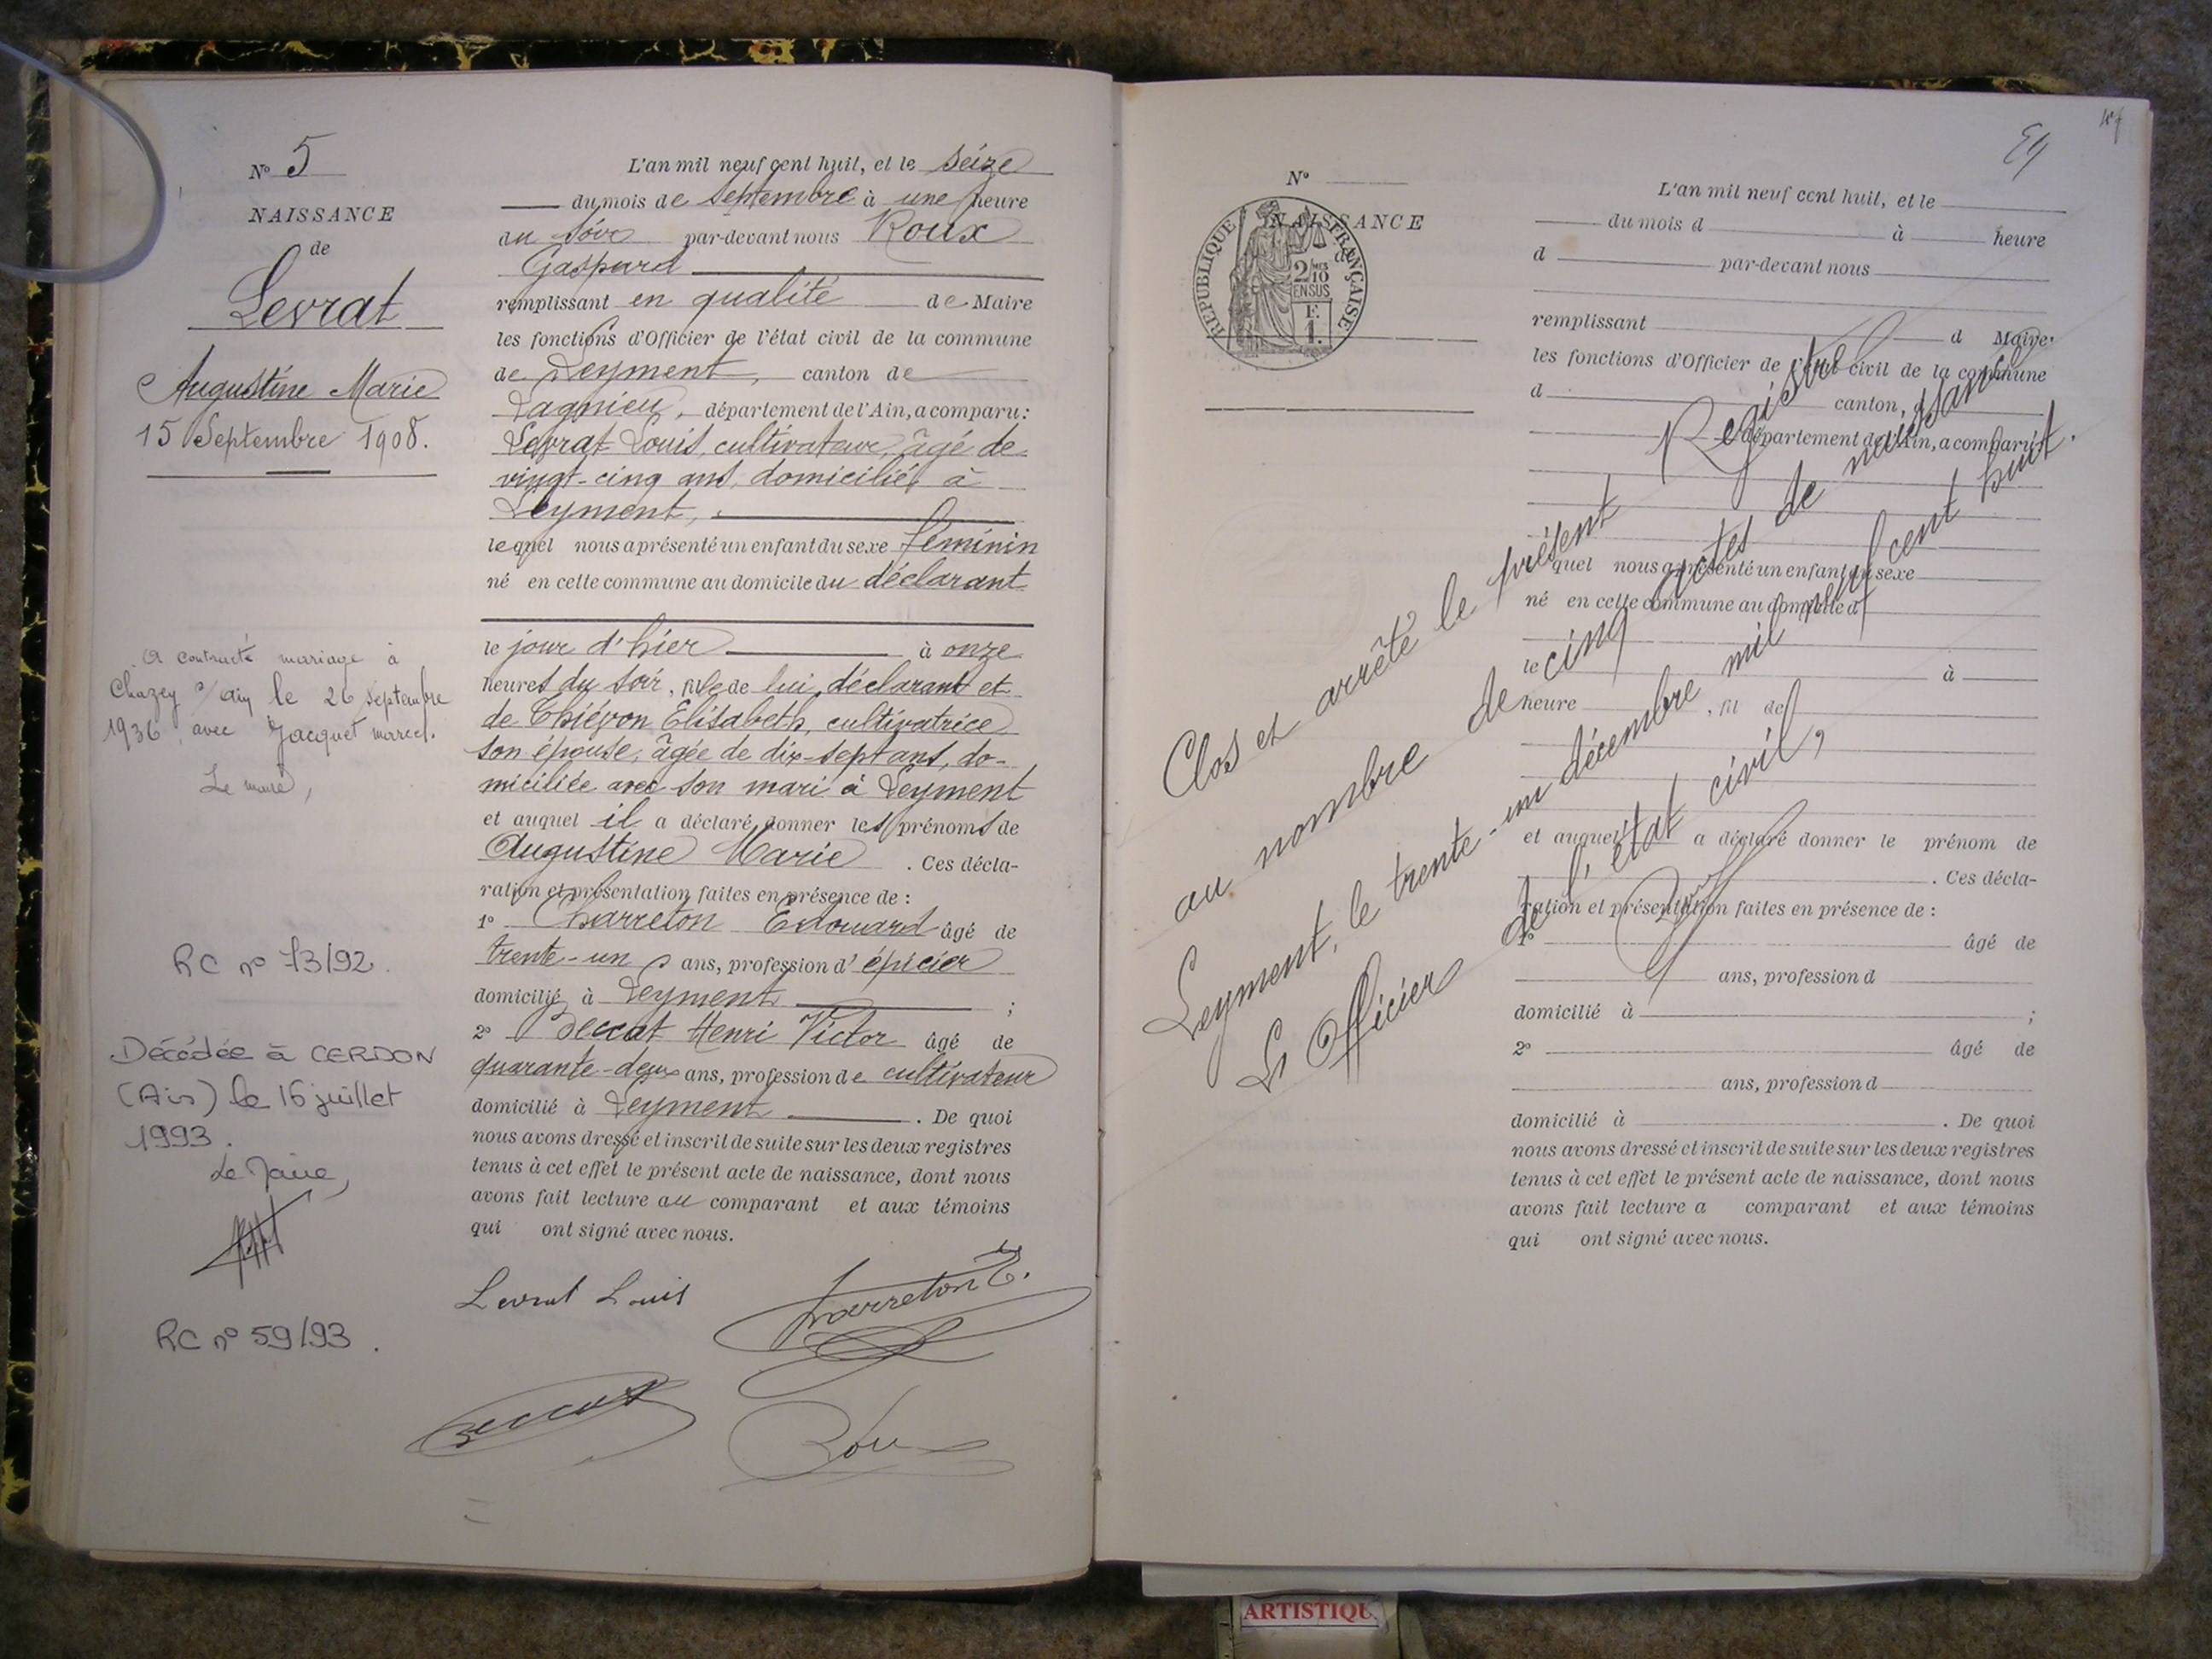 N° 5
NAISSANCE
de
Levrat
Augustine Marie
15 Septembre 1908.
A contracté mariage à
Chazey s/ Ain le 26 Septembre
1936 avec Jacquet Marcel.
Le maire,
RC n° 73/92
Décédée à CERDON
(Ain) le 16 juillet
1993.
Le Maire,
RC n° 59/93.
L'an mil neuf cent huit, et le seize
du mois de septembre à une heure
du soir par-devant nous Roux
Gaspard
remplissant en qualité de Maire
les fonctions d'Officier de l'état civil de la commune
de Leyment, canton de
Lagnieu, département de l'Ain, a comparu:
Levrat Louis, cultivateur, âgé de
vingt-cinq ans, domicilié à
Leyment,
lequel nous a présenté un enfant du sexe féminin
né en cette commune au domicile du déclarant
le jour d'hier à onze
heures du soir, fille de lui, déclarant et
de Chiévon Elisabeth, cultivatrice
son épouse, âgée de dix-sept ans, do-
miciliée avec son mari à Leyment
et auquel il a déclaré donner les prénoms de
Augustine Marie. Ces décla-
ration et présentation faites en présence de :
1° Charreton Edouard âgé de
trente-un ans, profession d'épicier
domicilié à Leyment ;
2° Beccat Henri Victor âgé de
quarante-deux ans, profession de cultivateur
domicilié à Leyment. De quoi
nous avons dressé et inscrit de suite sur les deux registres
tenus à cet effet le présent acte de naissance, dont nous
avons fait lecture au comparant et aux témoins
qui ont signé avec nous.
Levrat Louis
Charreton E.
Beccat
Roux
N°
NAISSANCE
d
REPUBLIQUE FRANÇAISE
2/10 MES
EN SUS
F.
1.
L'an mil neuf cent huit, et le
du mois d à heure
d par-devant nous
remplissant d Maire
les fonctions d'Officier de l'état civil de la commune
d canton, d
département de l'Ain, a comparu:
quel nous a présenté un enfant du sexe
né en cette commune au domicile d
le à
heure , fil de
et auquel a déclaré donner le prénom de
. Ces décla-
ration et présentation faites en présence de :
1° âgé de
ans, profession d
domicilié à ;
2° âgé de
ans, profession d
domicilié à . De quoi
nous avons dressé et inscrit de suite sur les deux registres
tenus à cet effet le présent acte de naissance, dont nous
avons fait lecture a comparant et aux témoins
qui ont signé avec nous.
Clos et arrêté le présent Registre
au nombre de cinq actes de naissance.
Leyment, le trente-un décembre mil neuf cent huit
L'Officier de l'état civil,
ARTISTIQU